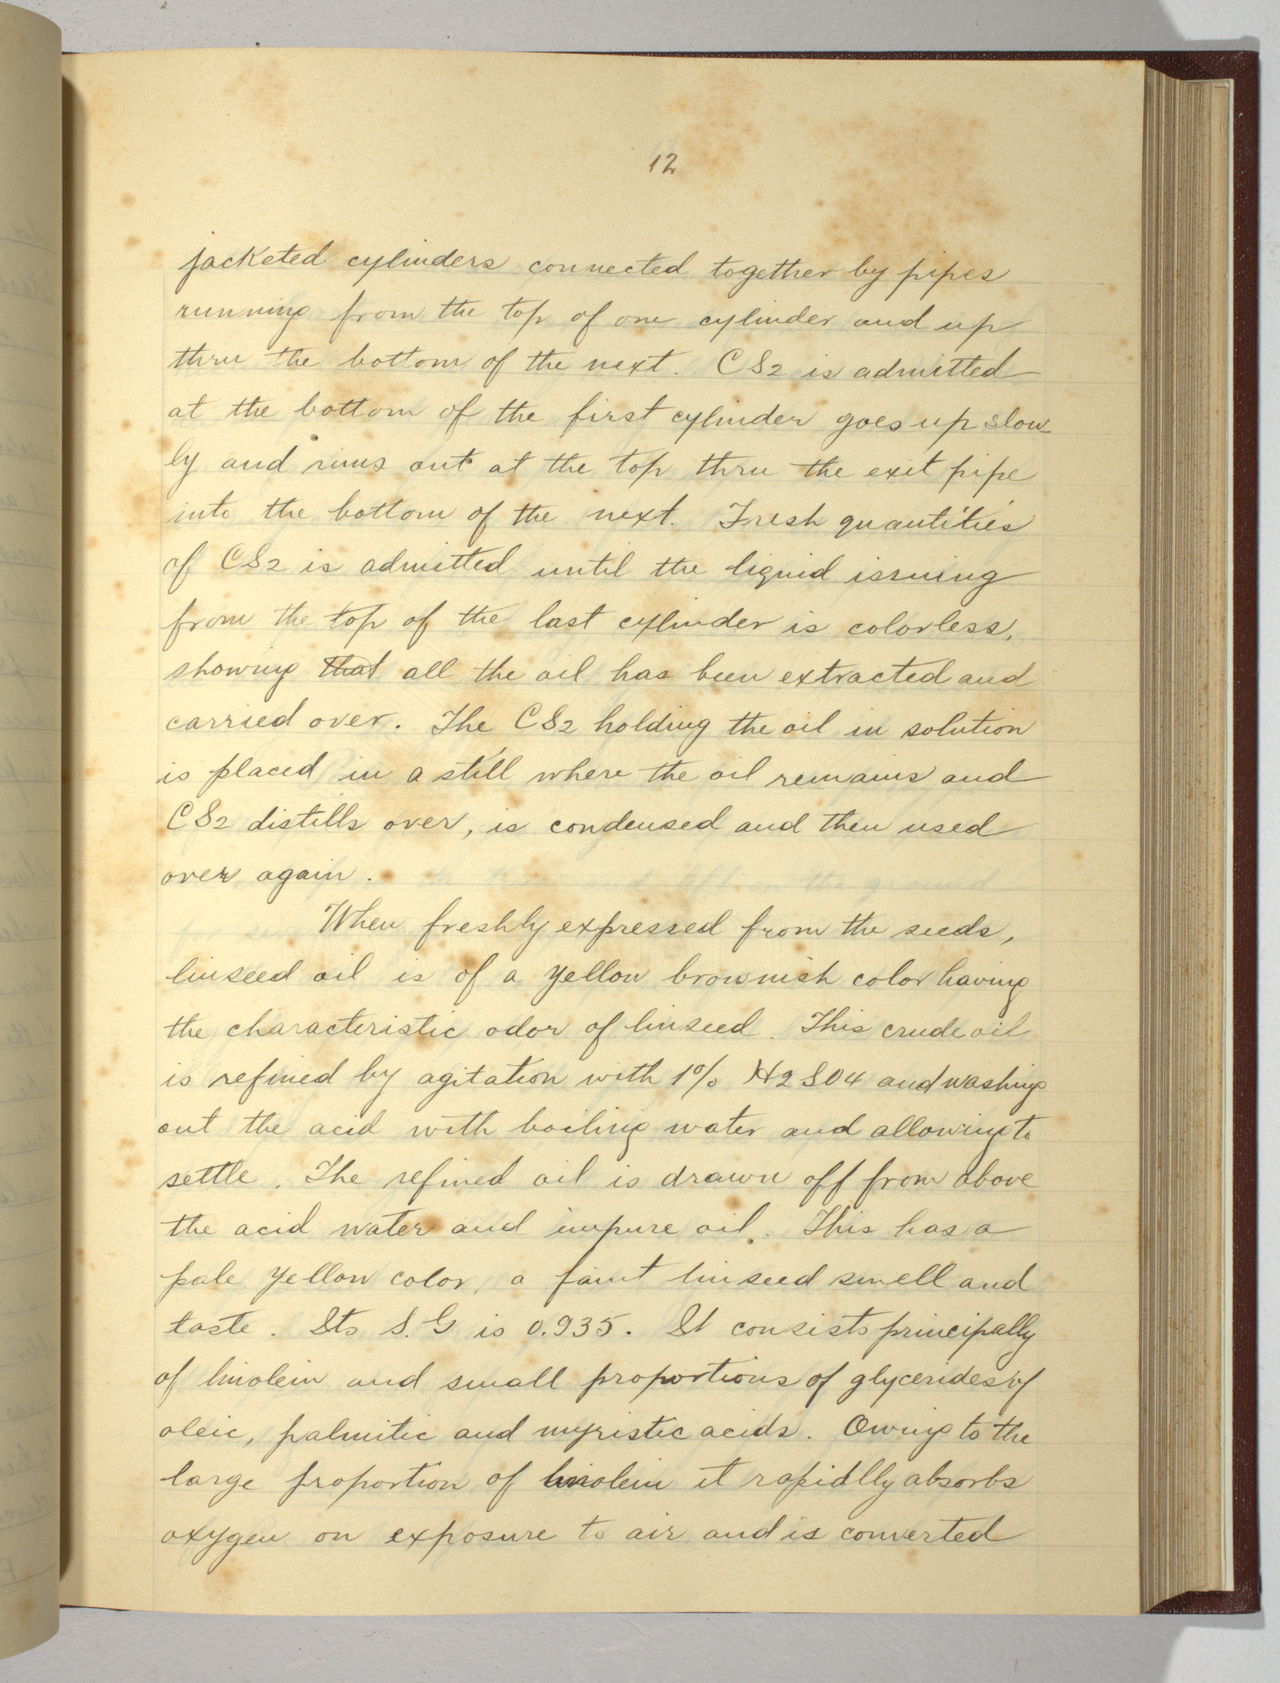 12
jacketed cylinders connected together by pipes
running from the top of one cylinder and up
thru the bottom of the next. CS2 is admitted
at the bottom of the first cylinder goes up slow
ly and runs out at the top thru the exit pipe
into the bottom of the next. Fresh quantities
of CS2 is admitted until the liquid issuing
from the top of the last cylinder is colorless,
showing that all the oil has been extracted and
carried over. The CS2 holding the oil in solution
is placed in a still where the oil remains and
CS2 distills over, is condensed and then used
over again.
When freshly expressed from the seeds,
linseed oil is of a yellow brownish color having
the characteristic odor of linseed. This crude oil
is refined by agitation with 1% H2SO4 and washing
out the acid with boiling water and allowing to
settle. The refined oil is drawn off from above
the acid water and impure oil. This has a
pale yellow color, a faint linseed smell and
taste. Its S.G is 0.935. It consists principally
of linolein and small proportions of glycerides of
oleic, palmitic and myristic acids. Owing to the
large proportion of linolein it rapidlly absorbs
oxygen on exposure to air and is converted